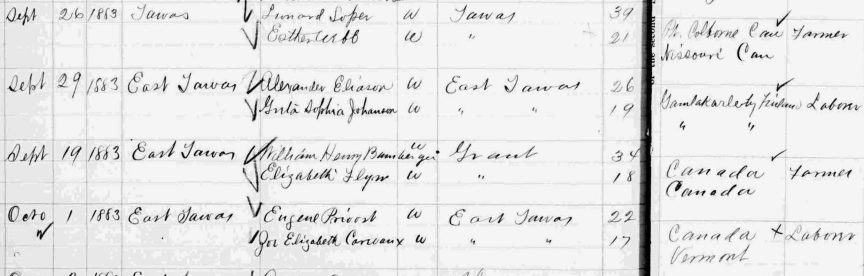 Sept 26 1883 Tawas Lenard Soper W Tawas 39 Pt. Colborne Can Farmer
Esther Webb W " 21 Missouri Can
Sept 29 1883 East Tawas Alexander Eliason W East Tawas 26 Gamlakarleby Laborer
Greta Sophia Johanson W " " 19 " "
Sept 19 1883 East Tawas William Henry Bamberger W Grant 34 Canada Farmer
Elizabeth Flynn W " 18 Canada
Octo 1 1883 East Tawas Eugene Privost W East Tawas 22 Canada + Laborer
" Elizabeth W " " 17 Vermont
of the second